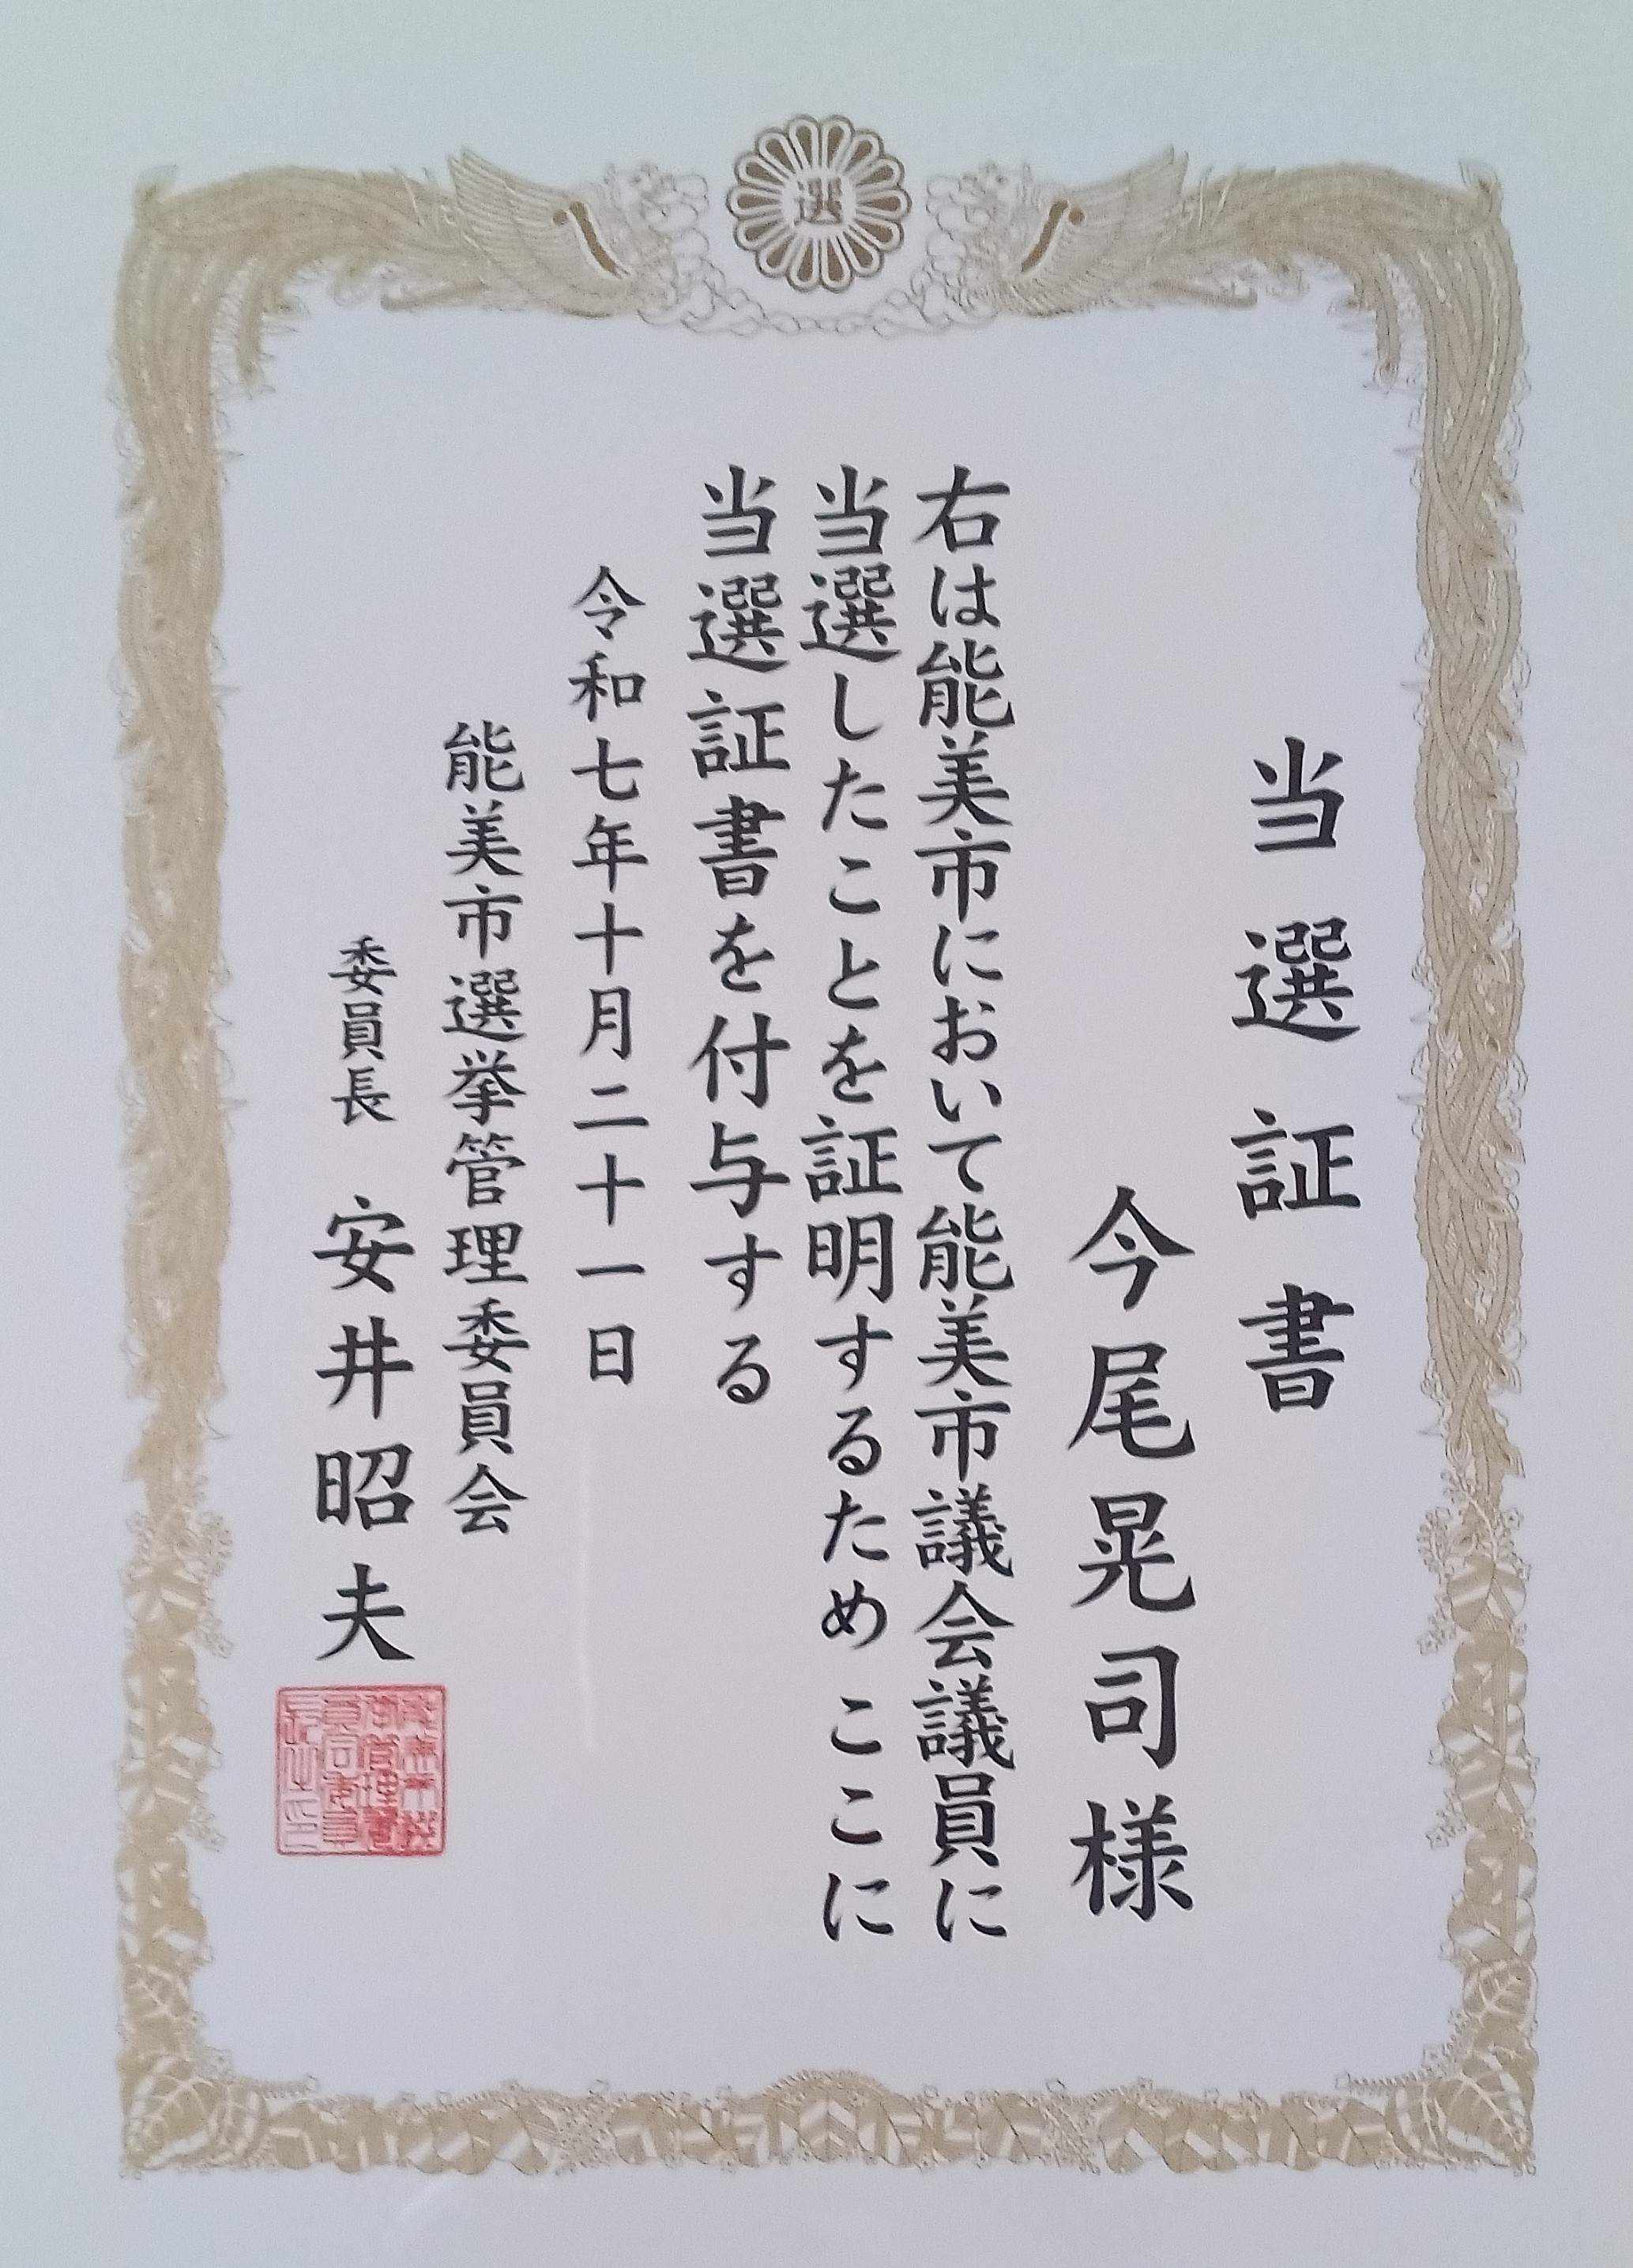 選
当選証書
今尾晃司様
右は能美市において能美市議会議員に
当選したことを証明するため ここに
当選証書を付与する
令和七年十月二十一日
能美市選挙管理委員会
委員長 安井昭夫